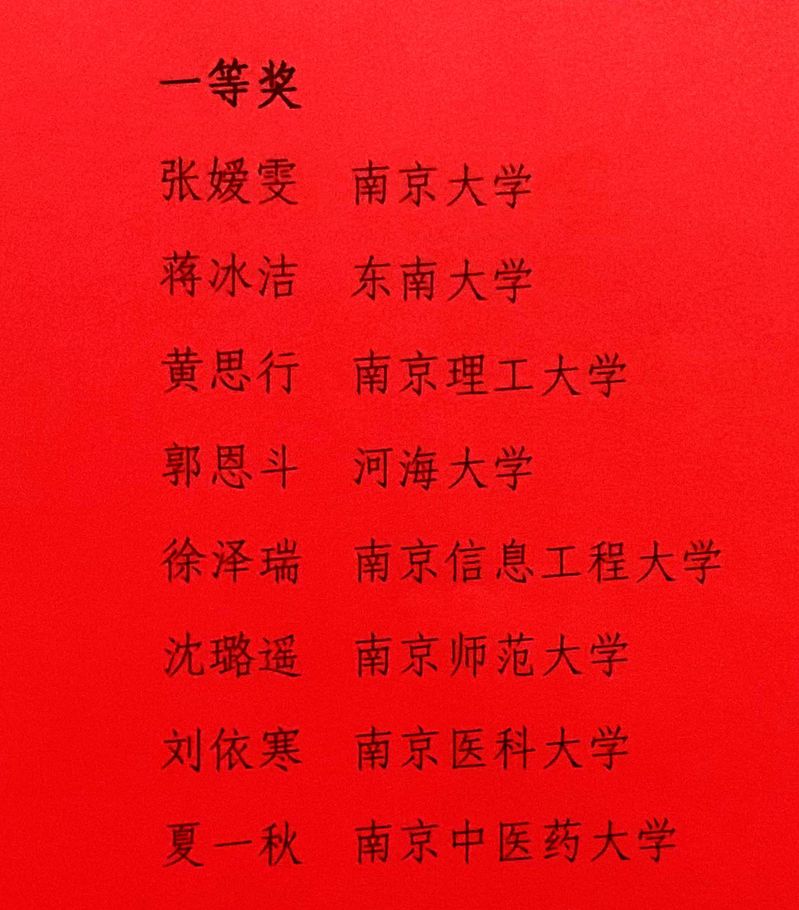 一等奖
张嫒雯 南京大学
蒋冰洁 东南大学
黄思行 南京理工大学
郭恩斗 河海大学
徐泽瑞 南京信息工程大学
沈璐遥 南京师范大学
刘依寒 南京医科大学
夏一秋 南京中医药大学